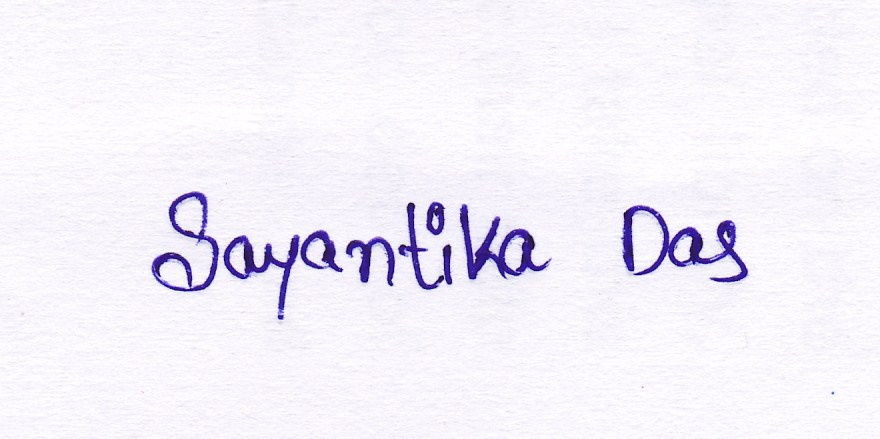 Sayantika Das